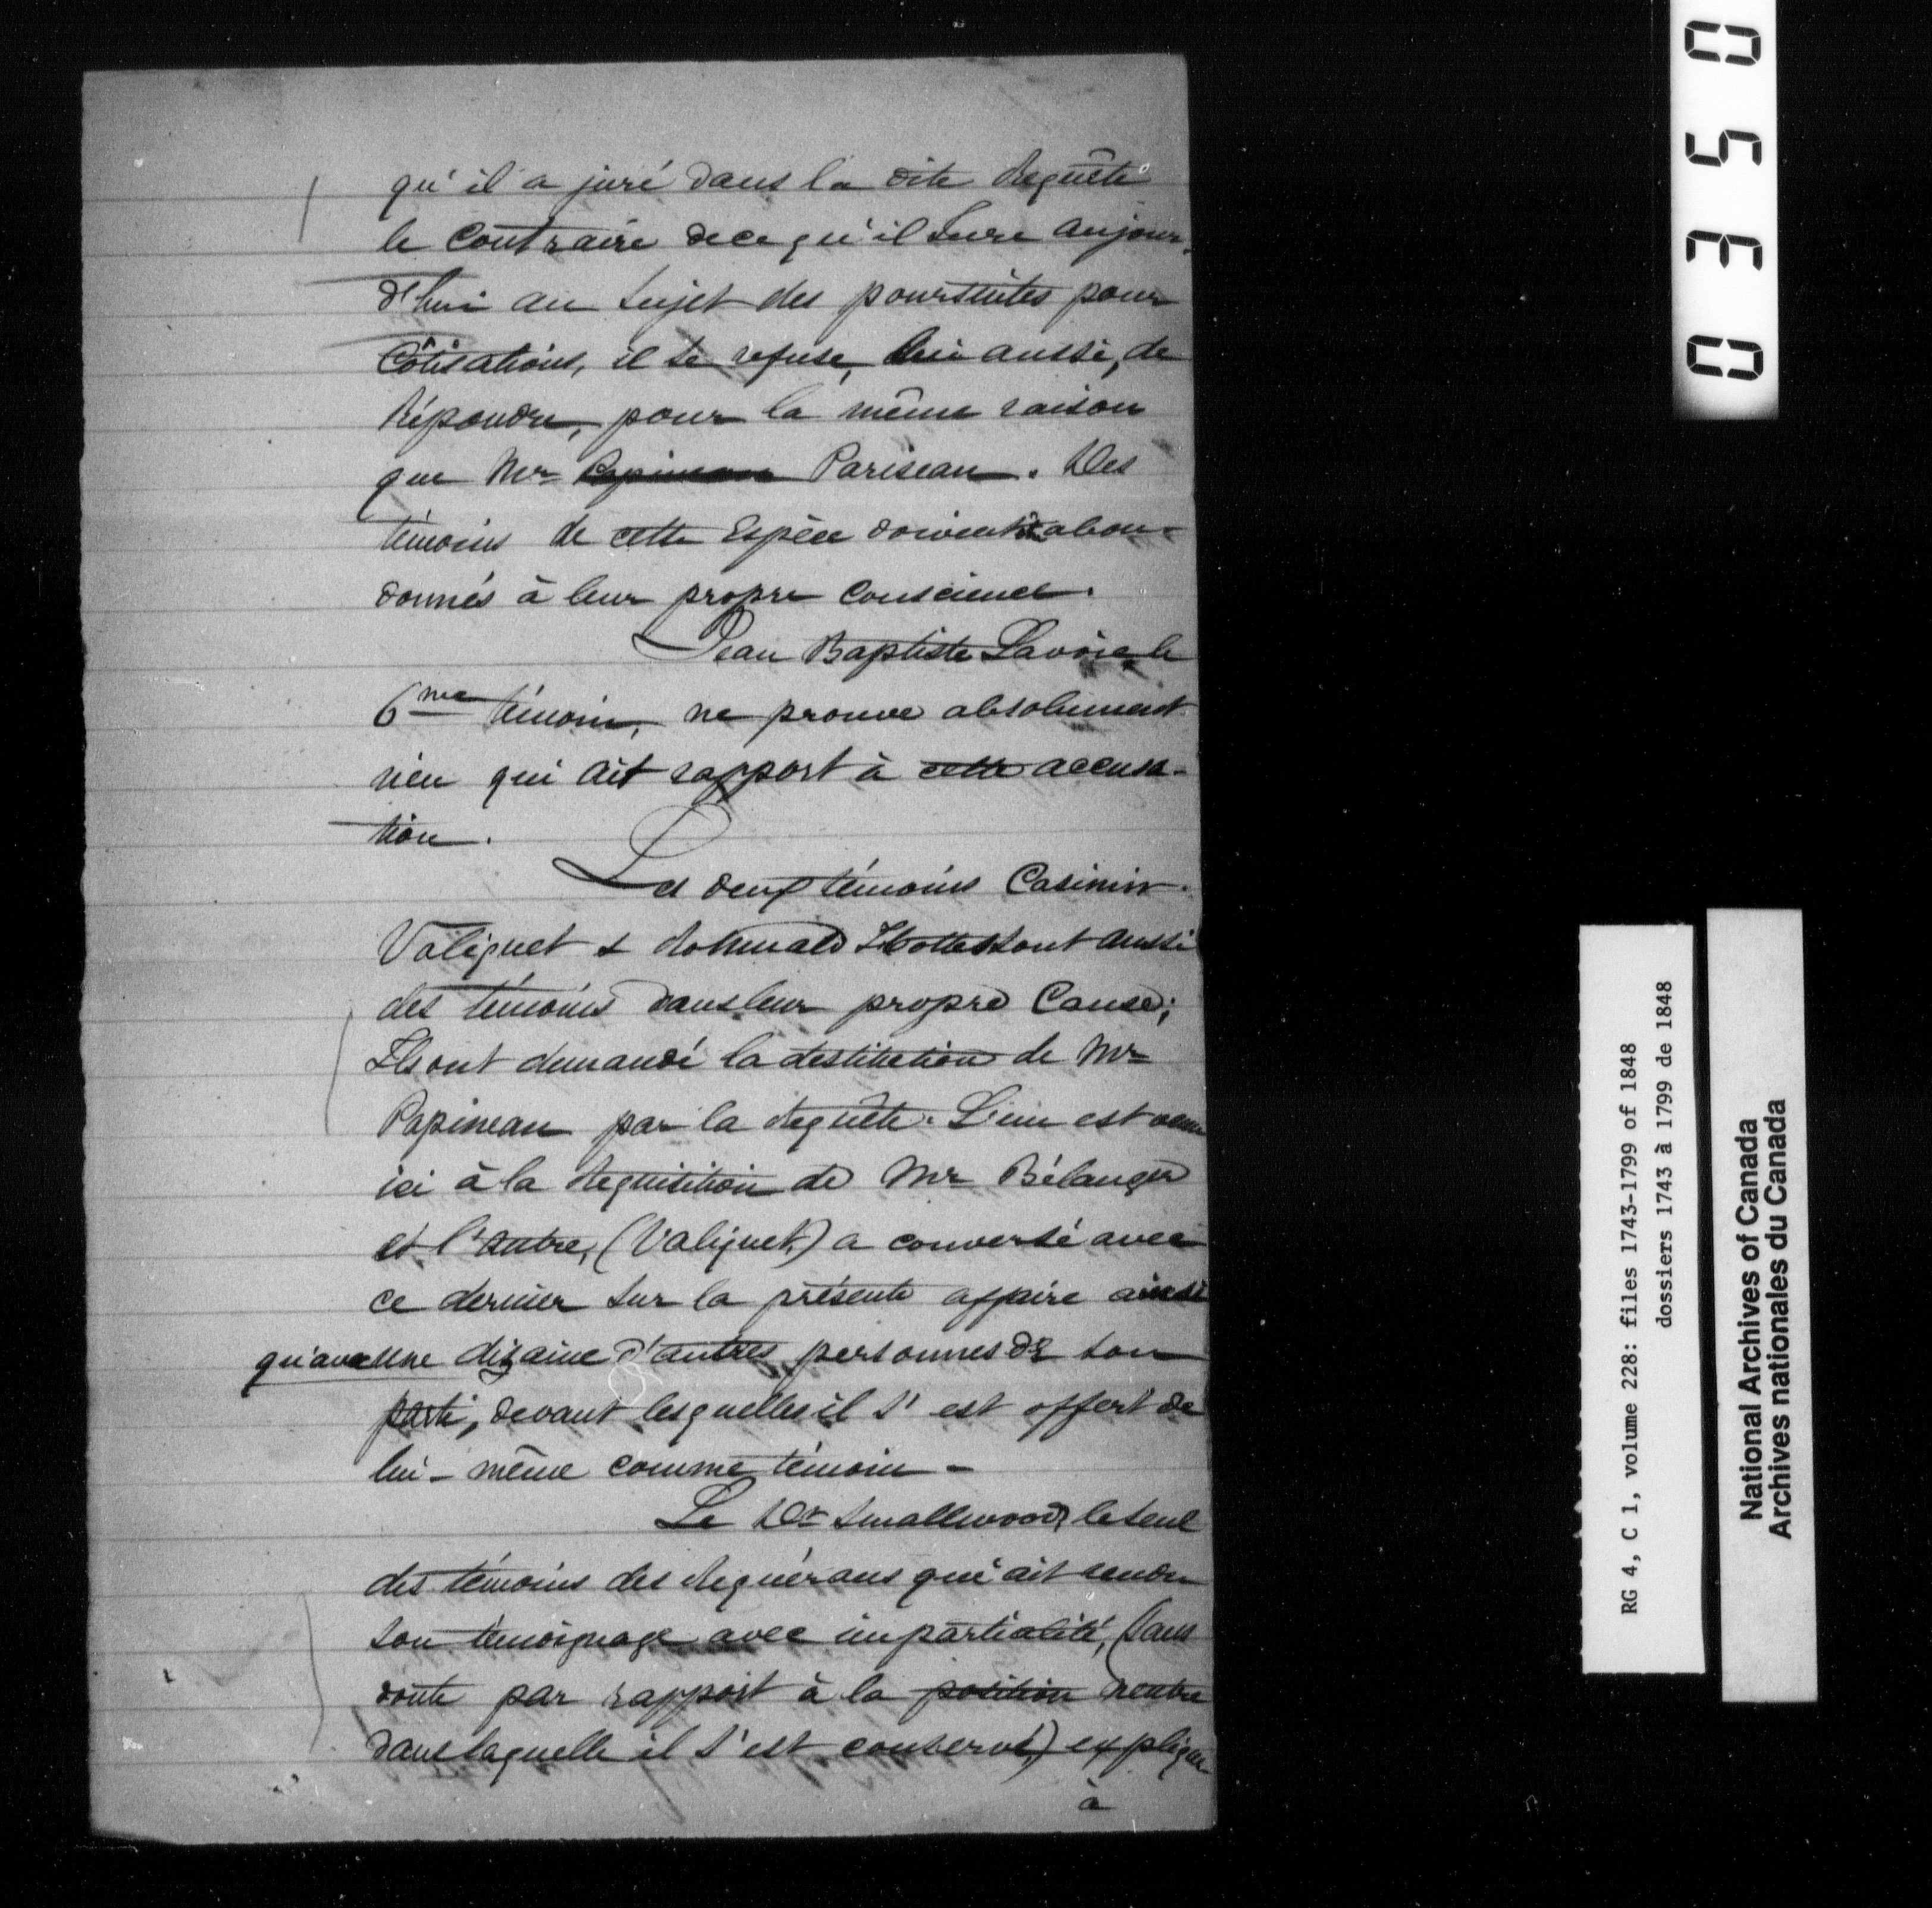 qu'il a juré dans la dite Requête
le Contraire de ce qu'il Jure aujour-
d'hui au Sujet des poursuites pour
Côtisations, il se refuse, lui aussi, de
Répondre, pour la même raison
que Mr Papineau Pariseau. Des
témoins de cette Espèce doivent aban-
donnés à leur propre Conscience.
Jean Baptiste Lavoie le
6me témoin, ne prouve absolument
rien qui ait rapport à cette accusa-
tion.
Les deux témoins Casimir
Valiquet & Romuald sont aussi
des témoins dans leur propre Cause;
Ils ont demandé la destitution de Mr
Papineau par la Requête. L'un est venu
ici à la Requisition de Mr Bélanger
et l'autre, (Valiquet,) a conversé avec
ce dernier sur la présente affaire ainsi
qu'avec une dizaine d'autres personnes de son
parti, devant lesquelles il s'est offert de
lui-même comme témoin -
Le Dr Smallwood, le seul
des témoins des Requérans qui ait rendu
son témoignage avec impartialité, (sans
doute par rapport à la position neutre
dans laquelle il s'est conservé,) explique
à
0350
RG 4, C 1, volume 228: files 1743-1799 of 1848
dossiers 1743 à 1799 de 1848
National Archives of Canada
Archives nationales du Canada